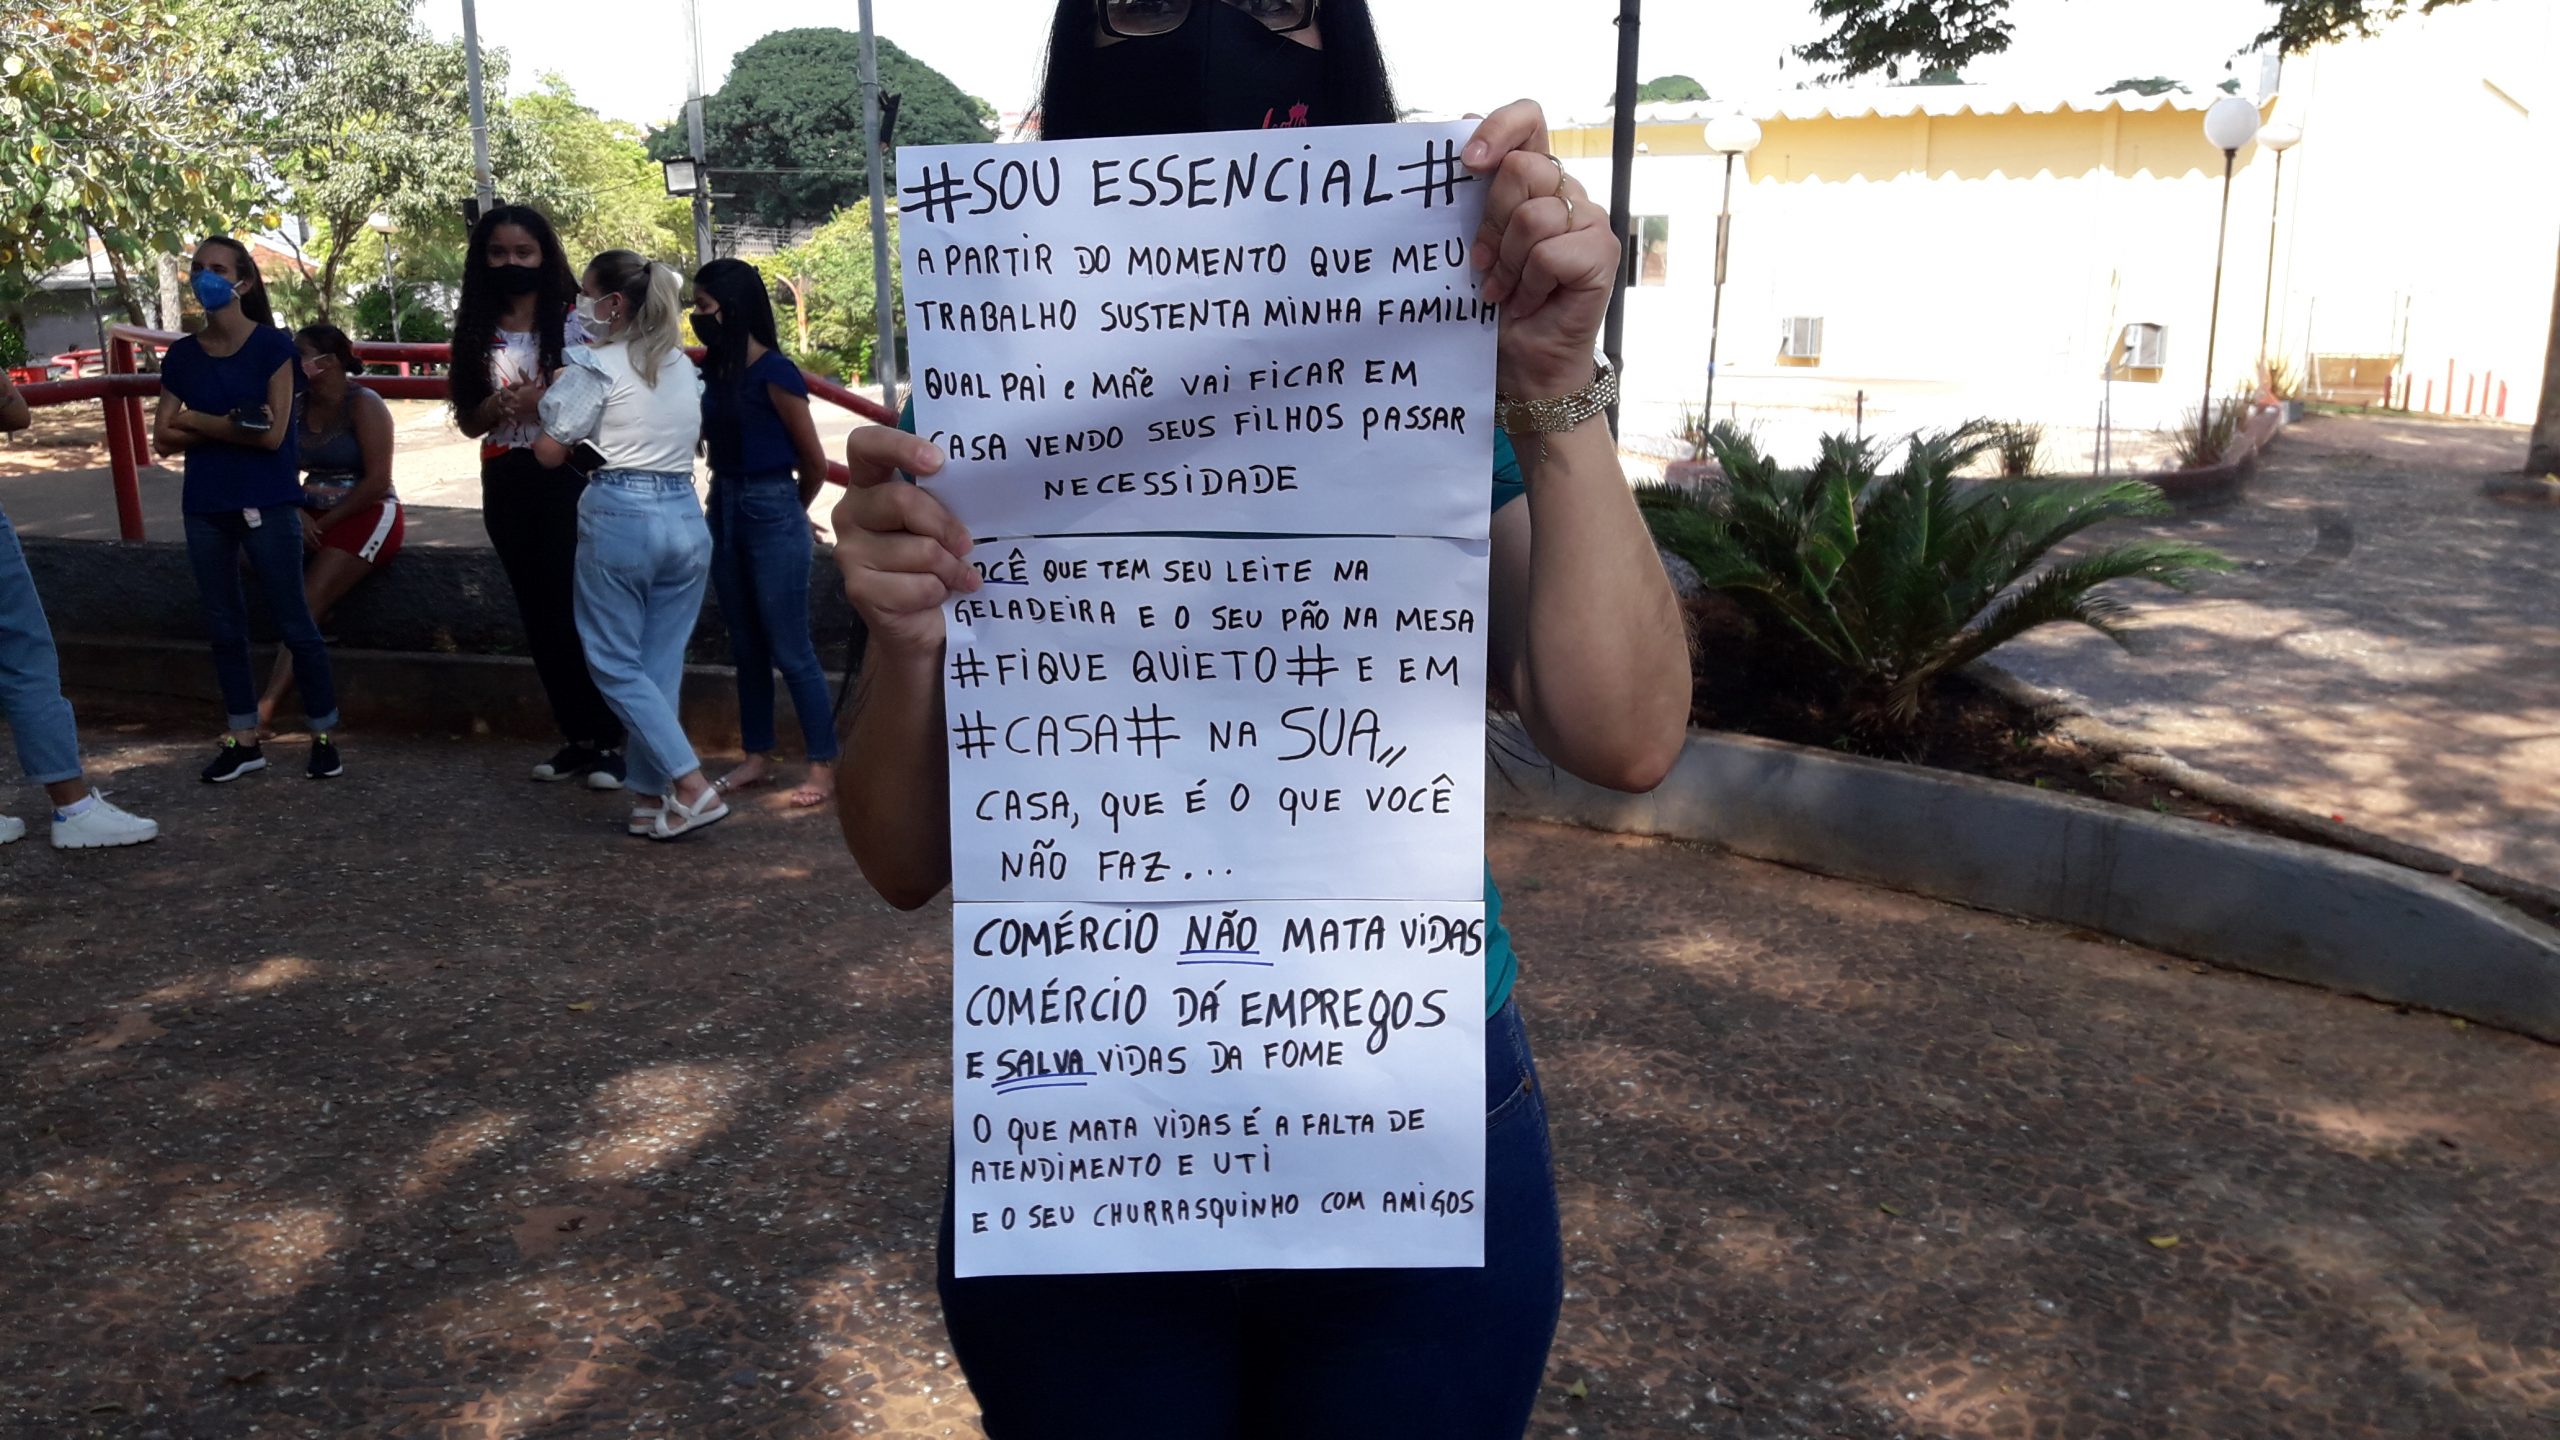 #SOU ESSENCIAL#
A PARTIR DO MOMENTO QUE MEU
TRABALHO SUSTENTA MINHA FAMILIA
QUAL PAI e MÃE VAI FICAR EM
CASA VENDO SEUS FILHOS PASSAR
NECESSIDADE
OCÊ QUE TEM SEU LEITE NA
GELADEIRA E O SEU PÃO NA MESA
#FIQUE QUIETO# E EM
#CASA# NA SUA,,
CASA, QUE É O QUE VOCÊ
NÃO FAZ...
COMÉRCIO NÃO MATA VIDAS
COMÉRCIO DÁ EMPREGOS
E SALVA VIDAS DA FOME
O QUE MATA VIDAS É A FALTA DE
ATENDIMENTO E UTI
E O SEU CHURRASQUINHO COM AMIGOS